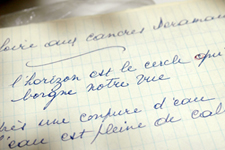 aux cancres
l'horizon est le cercle qui
borgne notre vue
une coupure d'eau
l'eau est pleine de cal